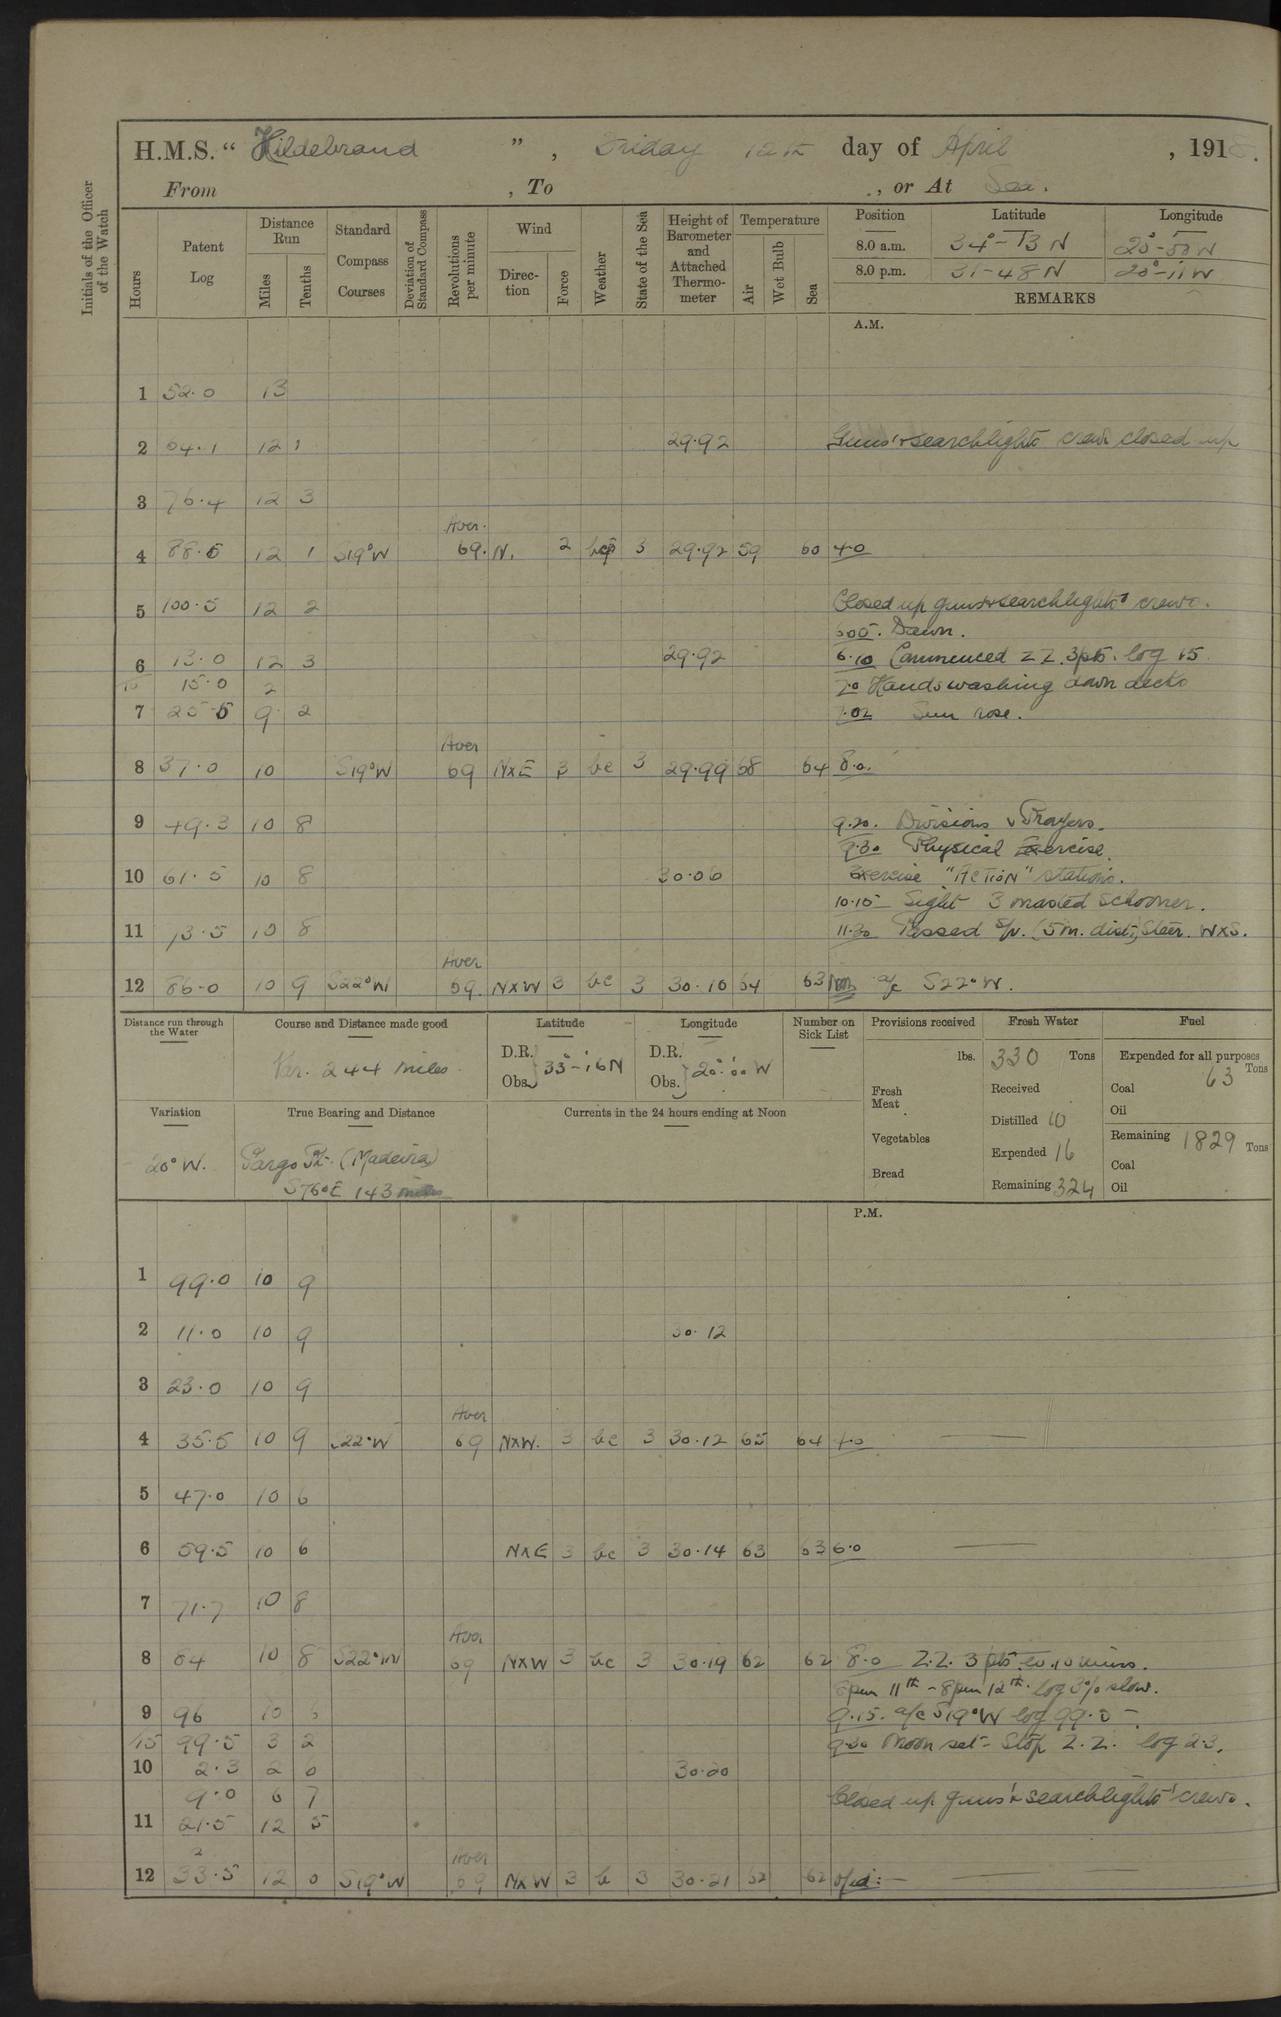 H.M.S. " Hildebrand ", Friday 12th day of April, 1918.
From , To , or At Sea.
Initials of the Officer of the Watch
Hours
Patent Log
Distance Run
Miles
Tenths
Standard Compass Courses
Deviation of Standard Compass
Revolutions per minute
Wind
Direction
Force
Weather
State of the Sea
Height of Barometer and Attached Thermometer
Temperature
Air
Wet Bulb
Sea
Position Latitude Longitude
8.0 a.m. 34°-13 N 20°-50 W
8.0 p.m. 31-48 N 20°-11 W
REMARKS
A.M.
1 52.0 13
2 64.1 12 1 29.92 Guns' & searchlights crews closed up
3 76.4 12 3
Aver.
4 88.5 12 1 S19°W 69. N. 2 3 29.92 59 60 4.0
5 100.5 12 2 Closed up guns' & searchlights' crews.
Dawn.
6 13.0 12 3 29.92 6.10 Commenced ZZ. 3pts. log 15
10 15.0 2 7.0 Hands washing down decks
7 25.5 9 2 7.02 Sun rose.
Aver
8 37.0 10 S19°W 69 NxE 3 bc 3 29.99 64 8.0.
9 49.3 10 8 9.20. Divisions & Prayers.
9.30 Physical Exercise.
10 61.5 10 8 30.06 Exercise "ACTION" stations.
10.15 Sight 3 masted schooner.
11 73.5 10 8 11.30 Passed S/V. (5 m. dist.) Steer. WxS.
Aver
12 86.0 10 9 S22°W 69. NxW 3 bc 3 30.10 64 63 Noon a/c S22°W.
Distance run through the Water
Course and Distance made good
Var. 244 miles
Latitude
D.R.
Obs. 33°-16N
Longitude
D.R.
Obs. 20°.00 W
Number on Sick List
Provisions received
lbs.
Fresh Meat
Vegetables
Bread
Fresh Water
330 Tons
Received
Distilled 10
Expended 16
Remaining 324
Fuel
Expended for all purposes
63 Tons
Coal
Oil
Remaining 1829 Tons
Coal
Oil
Variation
20° W.
True Bearing and Distance
Pargo Pt. (Madeira)
S76°E 143 miles
Currents in the 24 hours ending at Noon
P.M.
1 99.0 10 9
2 11.0 10 9 30.12
3 23.0 10 9
Aver
4 35.5 10 9 S22°W 69 NxW. 3 bc 3 30.12 65 64 4.0
5 47.0 10 6
6 59.5 10 6 NxE 3 bc 3 30.14 63 63 6.0
7 71.7 10 8
Aver
8 84 10 8 S22°W 69 NxW 3 bc 3 30.19 62 62 8.0 Z.Z. 3 pts. ev. 10 mins.
8pm 11th - 8pm 12th. log 3% slow.
9 96 10 9.15. a/c S19°W log 99.5
15 99.5 3 2 9.30 Moon set - Stop Z.Z. log 2.3.
10 2.3 2 6 30.20
9.0 6 7 Closed up guns' & searchlights' crews.
11 21.5 12 5
Aver
12 33.5 12 0 S19°W 69 NxW 3 b 3 30.21 62 62 Mid:-